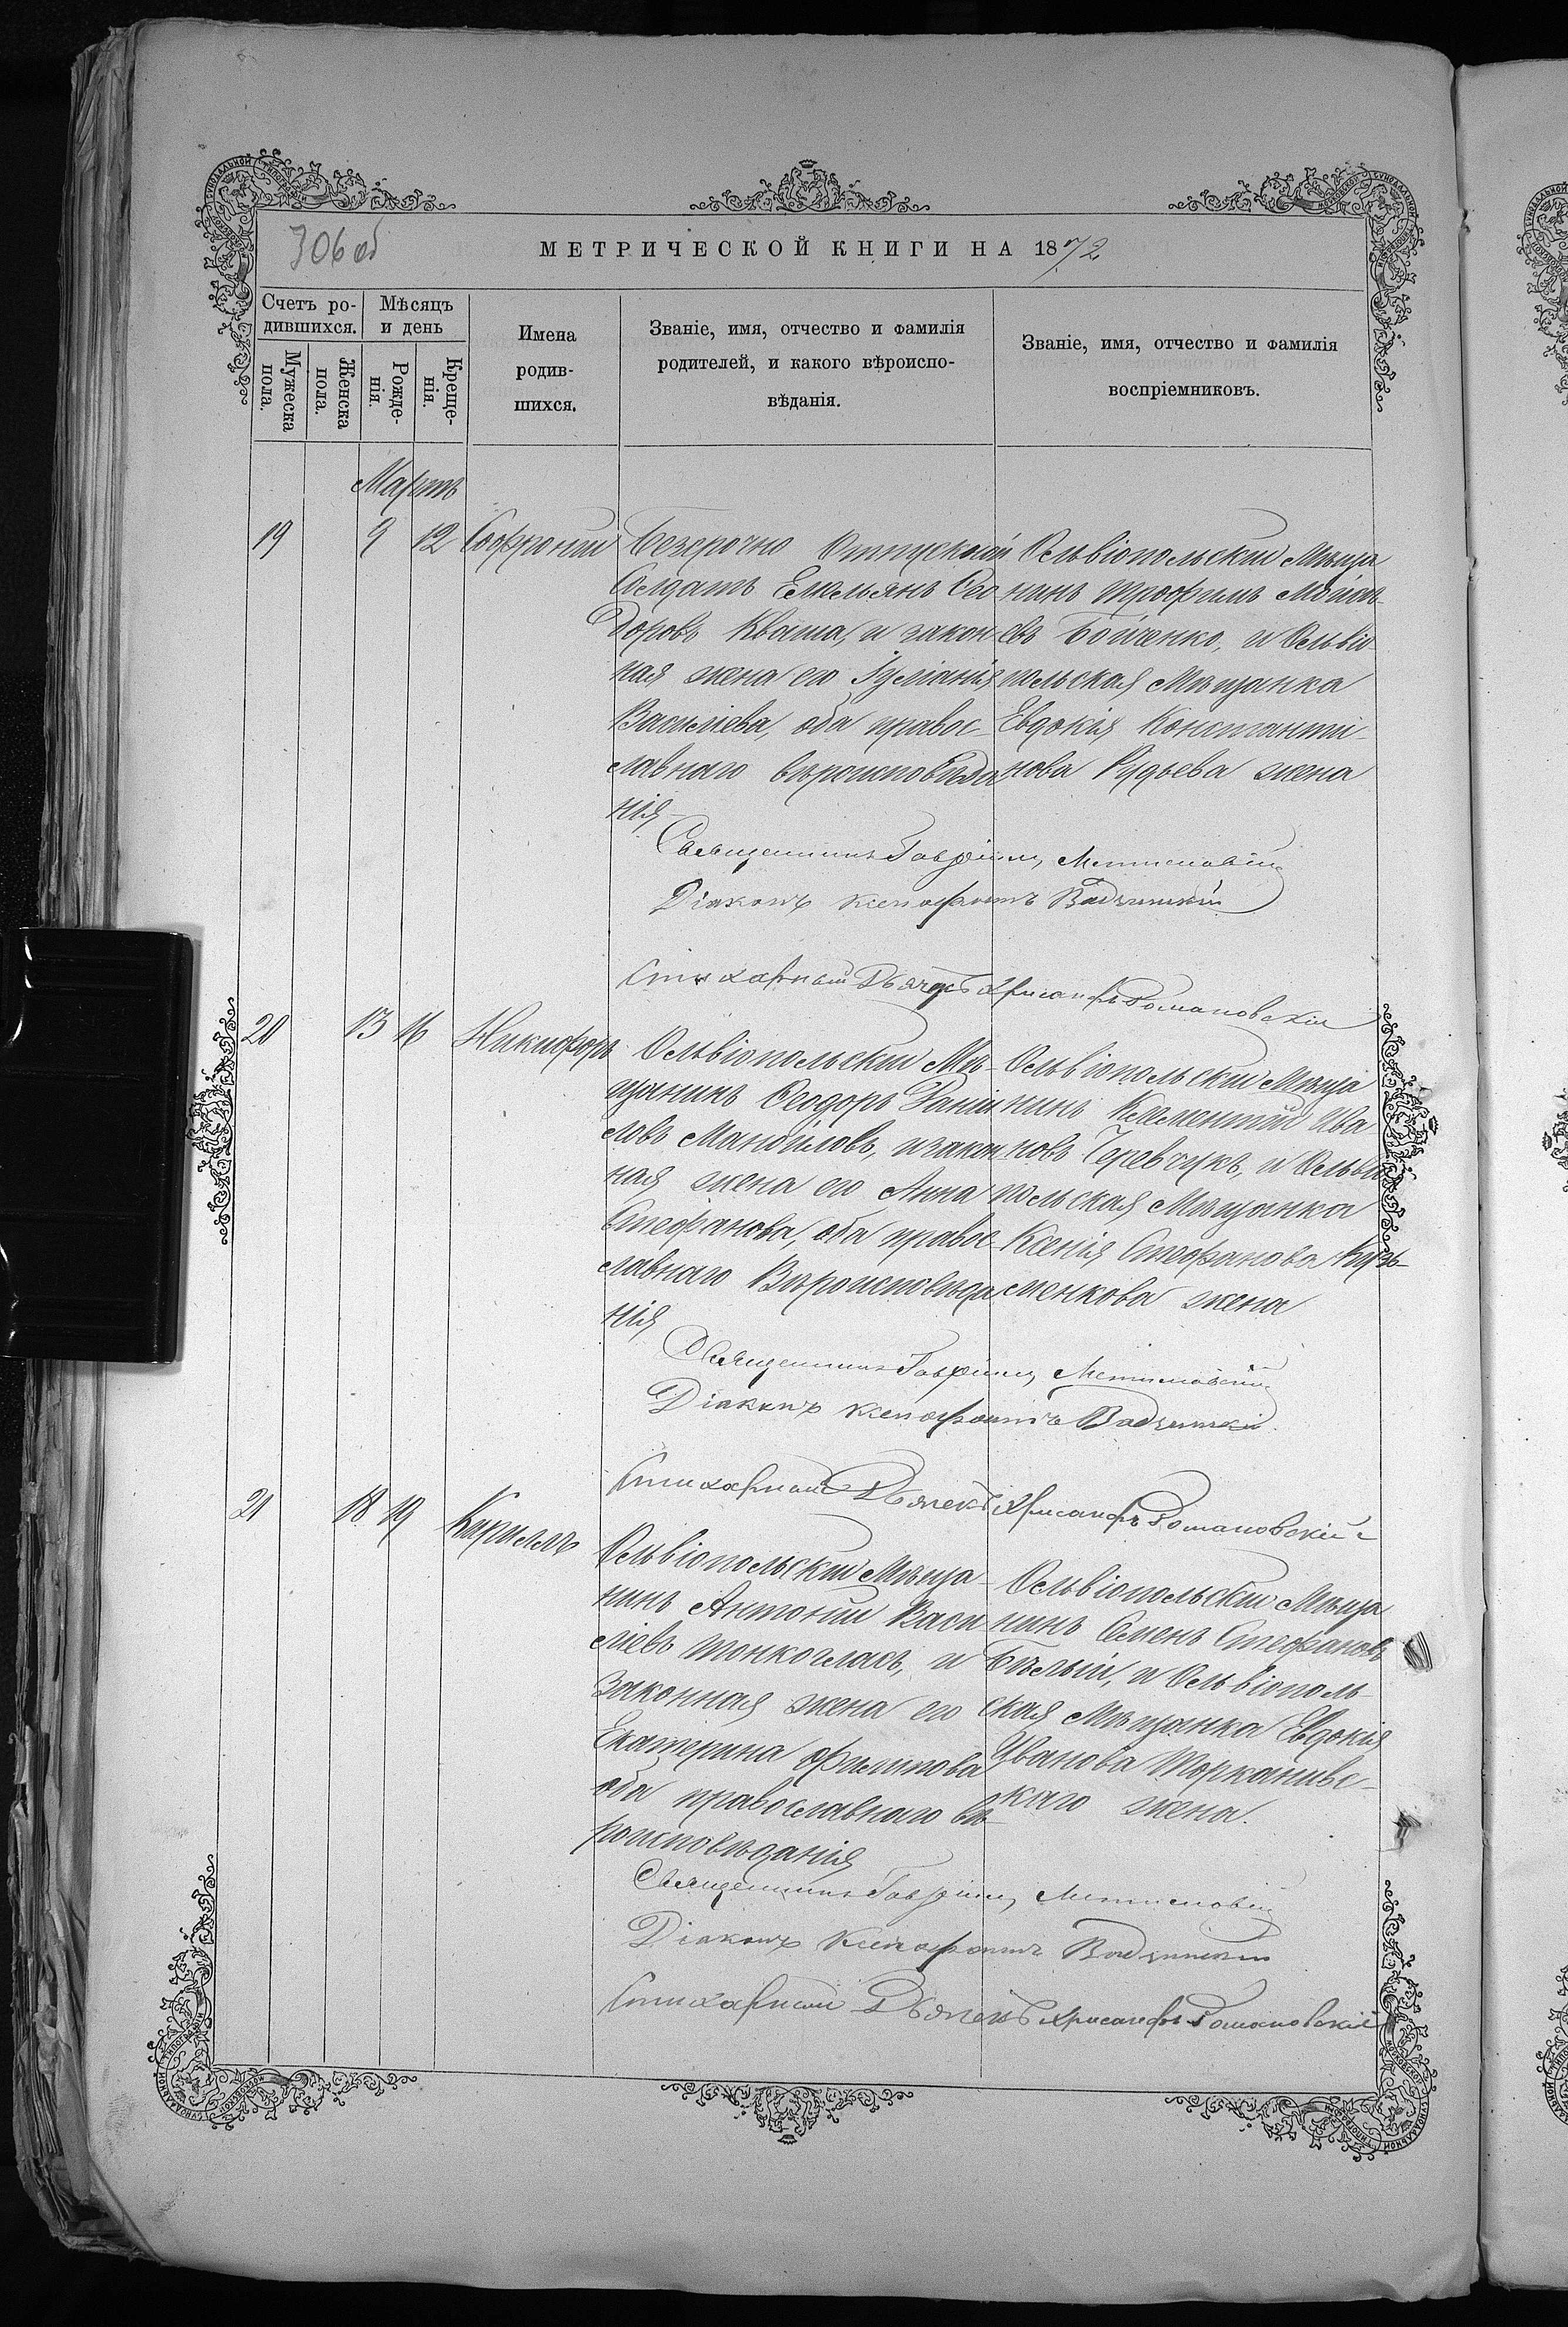 306 об
МЕТРИЧЕСКОЙ КНИГИ НА 1872
Счетъ ро-
дившихся.
Мужеска
пола.
Женска
пола.
Мѣсяцъ
и день
Рожде-
нія.
Креще-
нія.
Имена
родив-
шихся.
Званіе, имя, отчество и фамилія
родителей, и какого вѣроиспо-
вѣданія.
Званіе, имя, отчество и фамилія
воспріемниковъ.
Мартъ
19
9
12
Софроній
Безсрочно Отпускной
Солдатъ Емельянъ Ѳео
доровъ Кваша, и закон-
ная жена его Іуліанія
Василіева, оба правос-
лавнаго вѣроисповѣда
нія
Ольвіопольскій Мѣща
нинъ Трофимъ
Бойченко, и Ольвіо
польская Мѣщанка
Евдокія Константи-
нова Рудьева жена
Священникъ Гавріилъ
Діаконъ Ксенофонтъ
Стихарный Дьячекъ Хрисанфъ Романовскій
20
13
16
Никифоръ
Ольвіопольскій Мѣ-
щанинъ Ѳеодоръ Даніи
ловъ Манойловъ, и закон
ная жена его Анна
Стефанова, оба правос-
лавнаго Вѣроисповѣда
нія
Ольвіопольскій Мѣща
нинъ Климентій Ива
новъ Черевчукъ, и Ольвіо
польская Мѣщанка
Ксенія Стефанова Кузь-
менкова жена
Священникъ Гавріилъ
Діаконъ Ксенофонтъ
Стихарный Дьячекъ Хрисанфъ Романовскій
21
18
19
Кириллъ
Ольвіопольскій Мѣща-
нинъ Антоній Васи
ліевъ Тонкоглазъ, и
законная жена его
Екатерина Филипова
оба православнаго вѣ-
роисповѣданія
Ольвіопольскій Мѣща
нинъ Семенъ Стефановъ
Бѣлый, и Ольвіополь-
ская Мѣщанка Евдокія
Иванова Торканивс-
каго жена.
Священникъ Гавріилъ
Діаконъ Ксенофонтъ
Стихарный Дьячекъ Хрисанфъ Романовскій